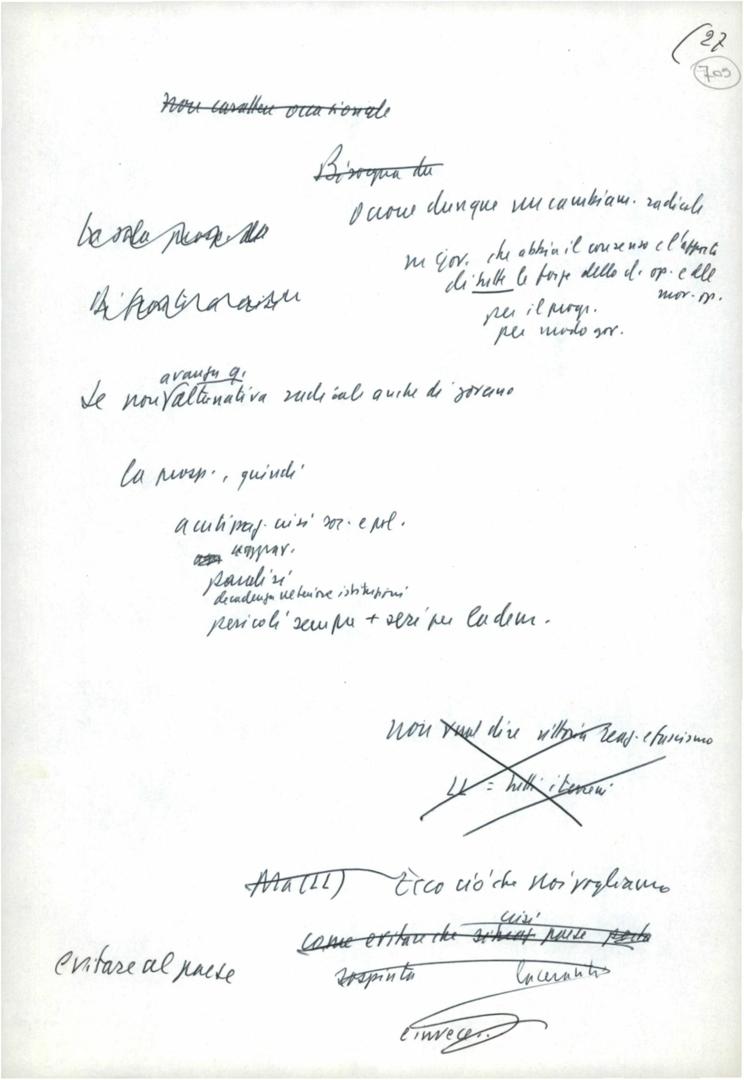 (27
705
Non carattere occasionale
Bisogna du
Occorre dunque un cambiam. radicale
La sola prospettiva
un gov. che abbia il consenso e l'apporto
di tutte le forze della cl. op. e del
mov. op.
per il progr.
per modo gov.
avanza q.
Se non alternativa radicale anche di governo
La prosp., quindi
crisi soc. e pol.
aggrav.
paralisi
decadenza ulteriore istituzioni
pericoli sempre + seri per la dem.
Non vuol dire vittoria reaz. e fascismo
LL = tutti i terreni
Ma (LL) Ecco ciò che noi vogliamo
crisi
come evitare che paese porta
evitare al paese sospinta lacerante
e invece